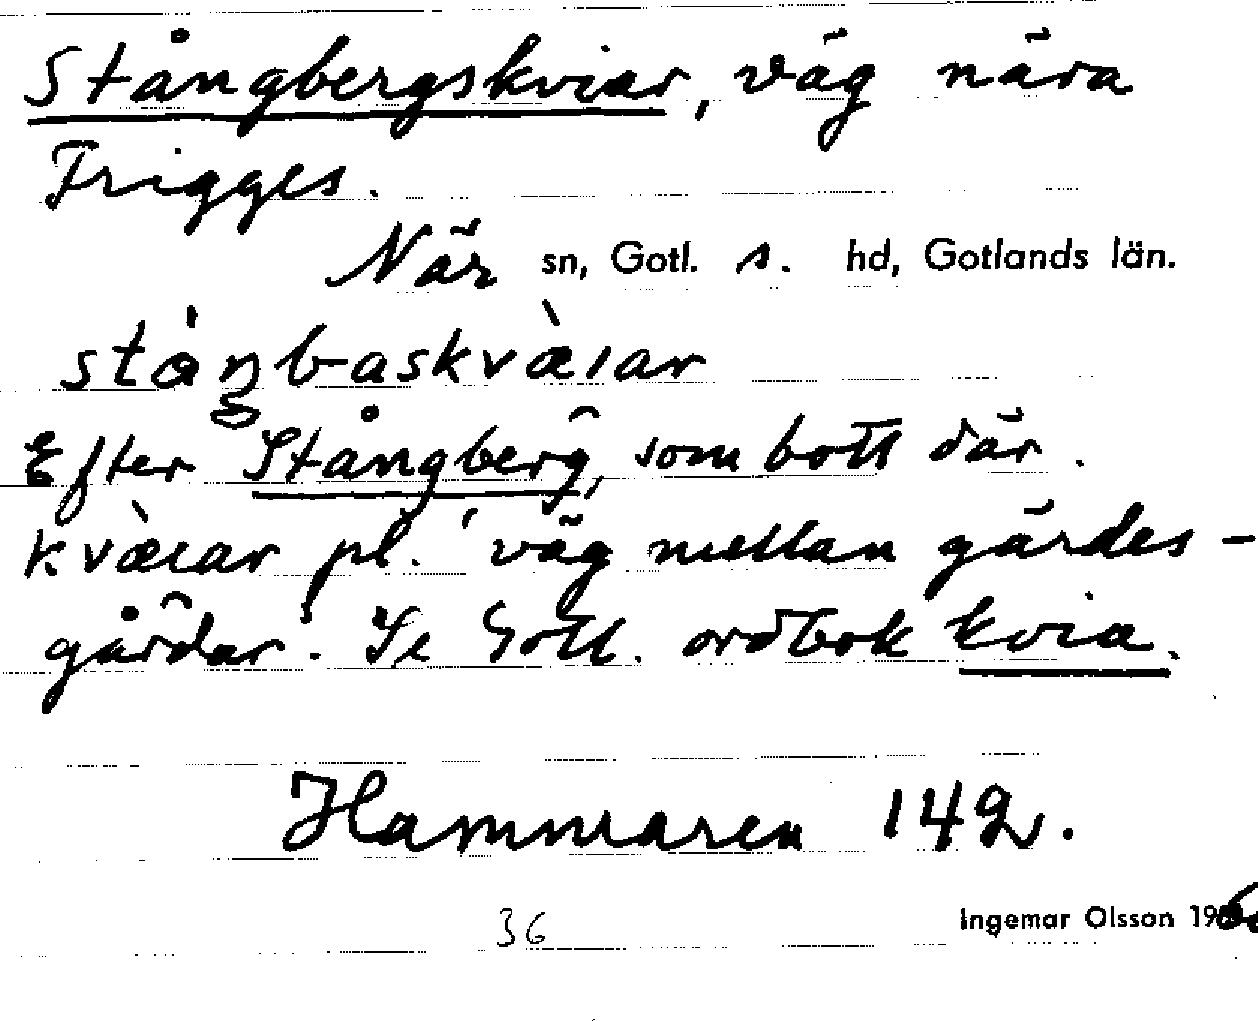 Stångbergskviar, väg nära
Frigges.
När sn, Gotl. s. hd, Gotlands län.
stáŋbaskvæ̀ıar
Efter Stångberg, som bott där.
kvæ̀ıar pl. 'väg mellan gärdes-
gårdar'. Se Gotl. ordbok kvia.
Hammaren 142.
36
Ingemar Olsson